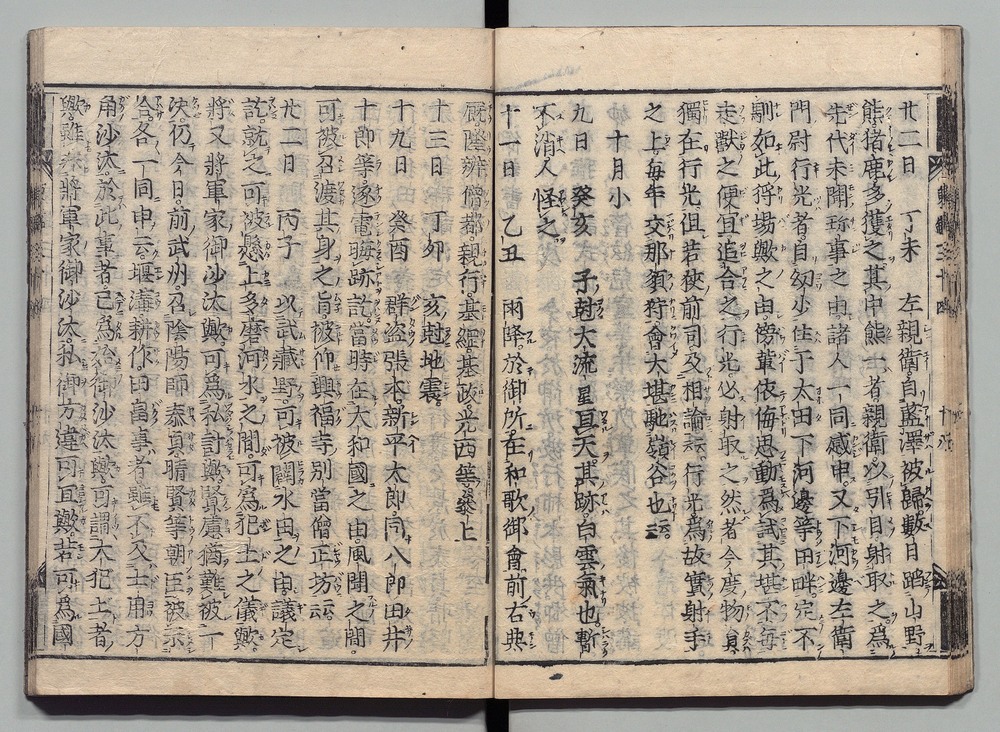 廿二日　丁未　左親衛自藍澤被歸數日踏山野
熊猪鹿多獲之其中熊一者親衛以引目射取之爲
先代未聞珍事之由諸人一同感申又下河邊左衛
門尉行光者自幼少住于太田下河邊等田畔定不
馴如此狩場歟之由傍輩依侮思動爲試其堪不毎
走獸之便宜追合之行光必射取之然者今度物員
獨在行光但若狹前司及相論云行光爲故實射手
之上毎年交那須狩會太堪馳嶺谷也云云
十月小
九日　癸亥　子尅大流星亘天其跡白雲氣也暫
不消人怪之
十一日　乙丑　雨降於御所在和歌御會前右典
厩陸辨僧都親行基綱基政光西等參上
十三日　丁卯　亥尅地震
十九日　癸酉　群盜張本新平太郎同八郎田井
十郎等逐電晦跡訖當時在大和國之由風聞之間
可被召渡其身之旨被仰興福寺別當僧正坊云云
廿二日　丙子　以武藏野可被闢水田之由議定
訖就之可被懸上多磨河水之間可爲犯土之儀歟
將又將軍家御沙汰歟可爲私計歟賢慮猶難被一
決仍今日前武州召陰陽師泰貞晴賢等朝臣被示
合各一同申云堰溝耕作田畠事者雖不及土用方
角沙汰於此事者已爲御沙汰歟可謂大犯土者
歟雖爲將軍家御沙汰私御方違可宜歟若可爲國